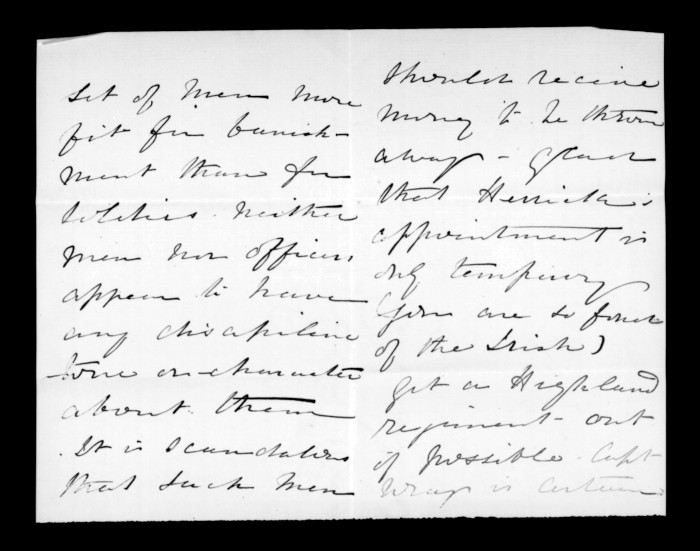 set of men more
fit for banish-
ment than for
soldiers. neither
men nor officers
appear to have
any discipline
tone or character
about them
It is scandalous
that such men
should receive
money to be thrown
away - glad
that Herrick's
appointment is
only temporary
(you are so fond
of the Irish)
get a Highland
regiment out
if possible. Capt
is certain